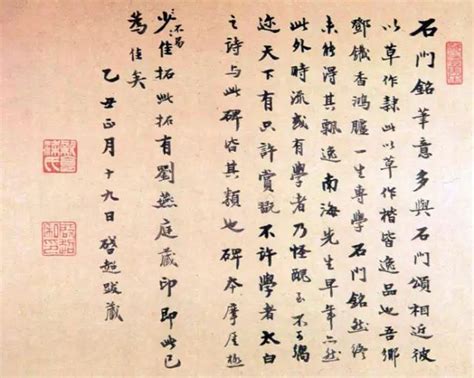 石門銘筆意多與石門頌相近彼
以草作隸此以草作楷皆逸品也吾鄉
鄧鐵香鴻臚一生專學石門銘然終
未能得其飄逸南海先生早年亦然
此外時流或有學者乃怪醜至不可嚮
迩天下有只許賞翫不許學者太白
之詩與此碑皆其類也碑本摩崖極
少佳拓此拓有劉燕庭藏印即此已
為佳矣
乙丑正月十九日啓超跋藏